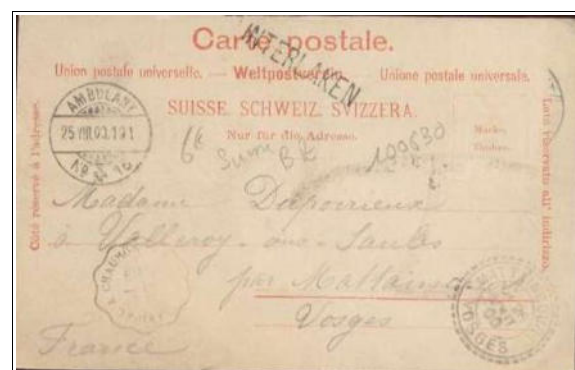 Carte postale.
INTERLAKEN
Union postale universelle. — Weltpostverein — Unione postale universale.
SUISSE. SCHWEIZ. SVIZZERA.
Nur für die Adresse.
AMBULANT
25 VIII 03.191
No
Côté réservé à l'adresse.
Lato riservato all' indirizzo.
Madame
à Valleroy-aux-Saules
par Mattaincourt
Vosges
France
CHAUM
VOSGES